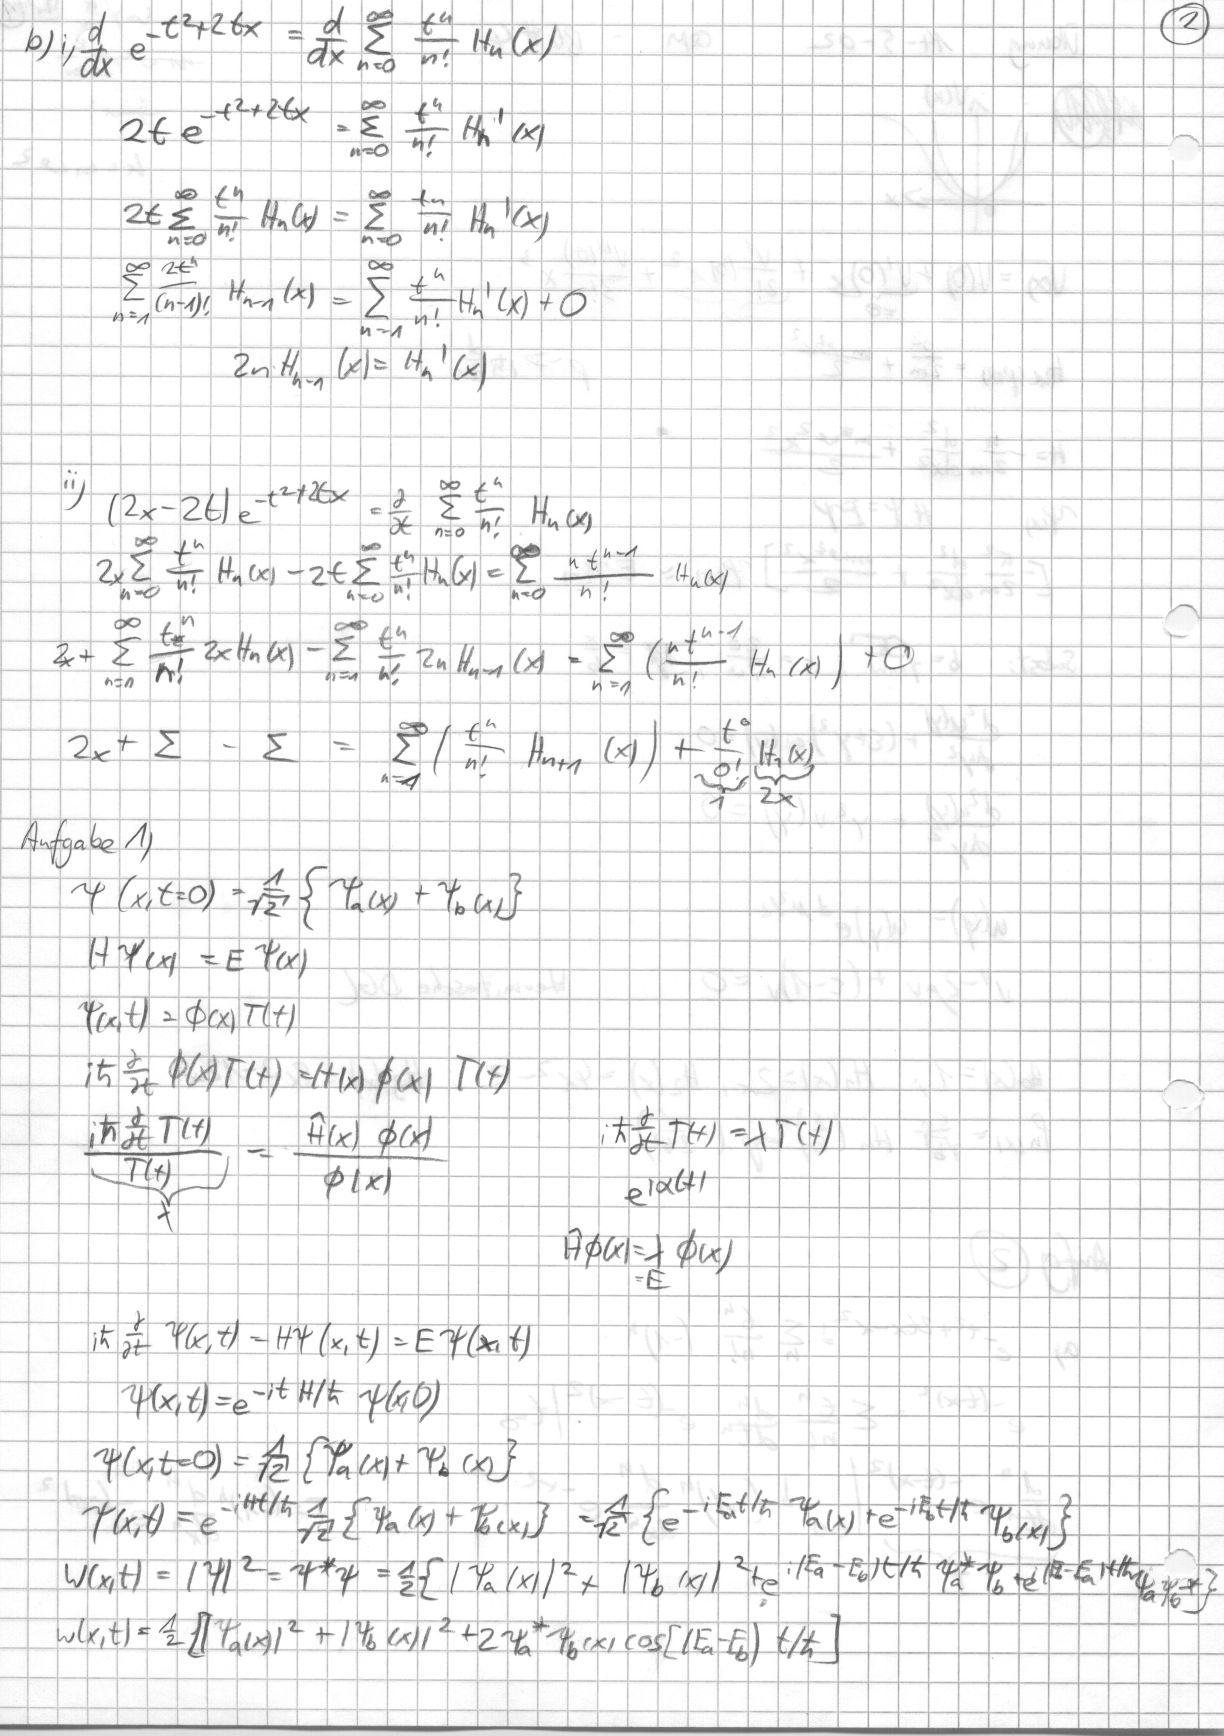 2
b) i, d/dx e^{-t²+2tx} = d/dx Σ_{n=0}^{∞} t^n/n! H_n(x)
2t e^{-t²+2tx} = Σ_{n=0}^{∞} t^n/n! H_n'(x)
2t Σ_{n=0}^{∞} t^n/n! H_n(x) = Σ_{n=0}^{∞} t^n/n! H_n'(x)
Σ_{n=1}^{∞} 2t^n/(n-1)! H_{n-1}(x) = Σ_{n=1}^{∞} t^n/n! H_n'(x) + 0
2n H_{n-1}(x) = H_n'(x)
ii) (2x-2t) e^{-t²+2tx} = ∂/∂t Σ_{n=0}^{∞} t^n/n! H_n(x)
2x Σ_{n=0}^{∞} t^n/n! H_n(x) - 2t Σ_{n=0}^{∞} t^n/n! H_n(x) = Σ_{n=0}^{∞} n t^{n-1}/n! H_n(x)
2x + Σ_{n=1}^{∞} t^n/n! 2x H_n(x) - Σ_{n=1}^{∞} t^n/n! 2n H_{n-1}(x) = Σ_{n=1}^{∞} (n t^{n-1}/n! H_n(x)) + 0
2x + Σ - Σ = Σ_{n=1}^{∞} (t^n/n! H_{n+1}(x)) + t^0/0! H_1(x)
1 2x
Aufgabe 1)
ψ(x,t=0) = 1/√2 {ψ_a(x) + ψ_b(x)}
Hψ(x) = Eψ(x)
ψ(x,t) = ϕ(x) T(t)
iħ ∂/∂t ϕ(x) T(t) = H(x) ϕ(x) T(t)
iħ ∂/∂t T(t) / T(t) = Ĥ(x) ϕ(x) / ϕ(x) iħ ∂/∂t T(t) = λ T(t)
λ e^{iα(t)}
Ĥϕ(x) = λ ϕ(x)
= E
iħ ∂/∂t ψ(x,t) = Hψ(x,t) = Eψ(x,t)
ψ(x,t) = e^{-itH/ħ} ψ(x,0)
ψ(x,t=0) = 1/√2 {ψ_a(x) + ψ_b(x)}
ψ(x,t) = e^{-iHt/ħ} 1/√2 {ψ_a(x) + ψ_b(x)} = 1/√2 {e^{-iE_a t/ħ} ψ_a(x) + e^{-iE_b t/ħ} ψ_b(x)}
W(x,t) = |ψ|² = ψ*ψ = 1/2 {|ψ_a(x)|² + |ψ_b(x)|² + e^{i(E_a-E_b)t/ħ} ψ_a* ψ_b + e^{i(E_b-E_a)t/ħ} ψ_a ψ_b*}
w(x,t) = 1/2 [|ψ_a(x)|² + |ψ_b(x)|² + 2ψ_a* ψ_b(x) cos[(E_a-E_b) t/ħ]